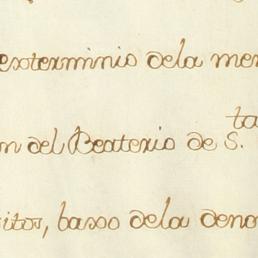 exterminio dela mem
n del Beaterio de S.ta
itos, baxo dela deno